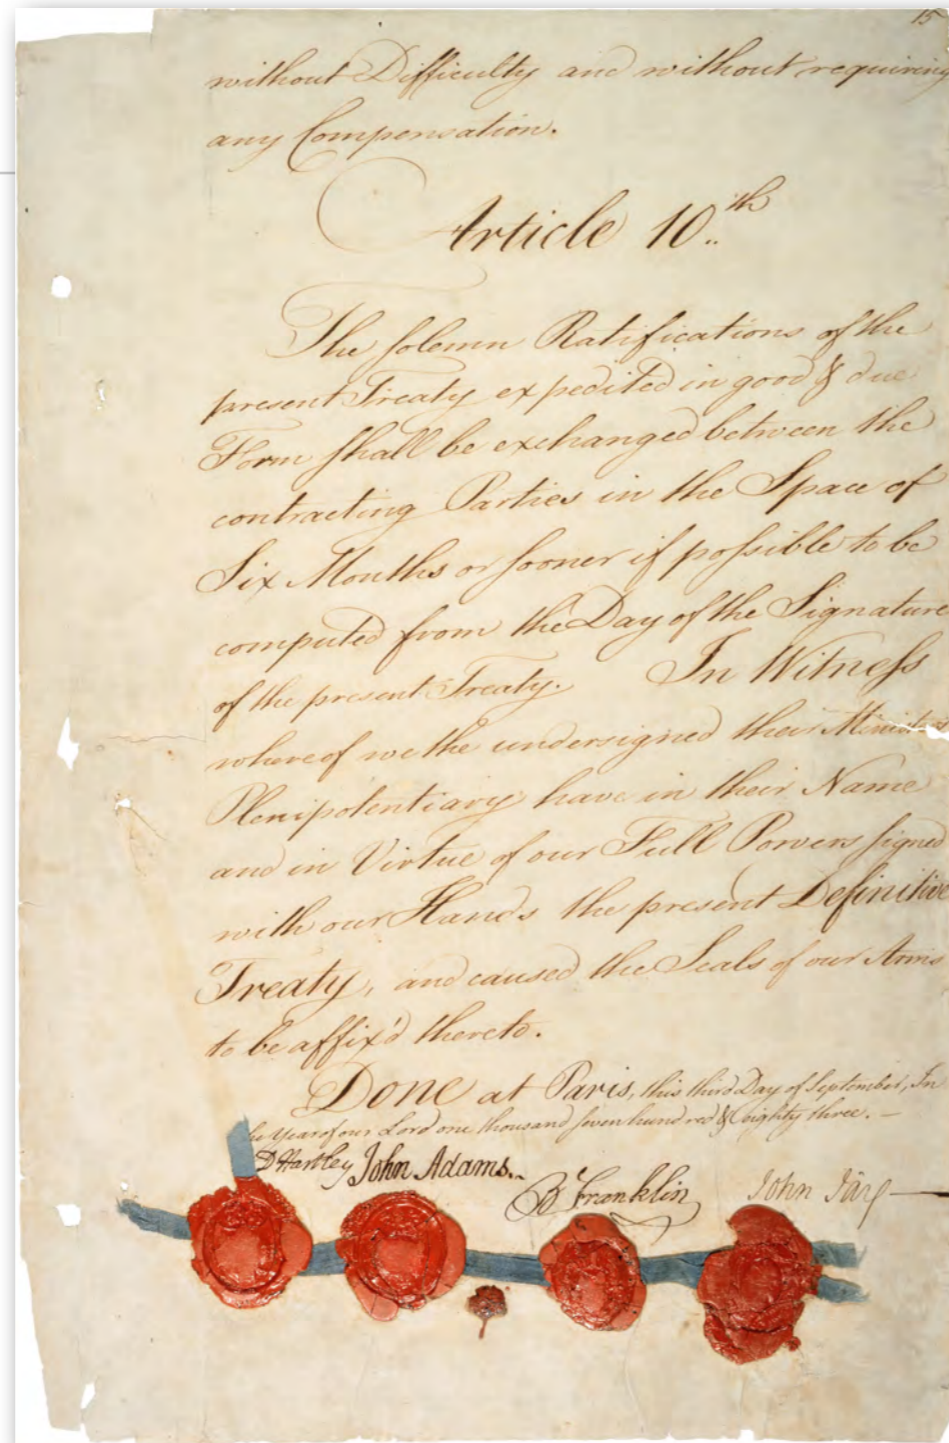 15
without Difficulty and without requiring
any Compensation.
Article 10.th
The solemn Ratifications of the
present Treaty expedited in good & due
Form shall be exchanged between the
contracting Parties in the Space of
Six Months or sooner if possible to be
computed from the Day of the Signature
of the present Treaty. In Witness
whereof we the undersigned their Ministers
Plenipotentiary have in their Name
and in Virtue of our Full Powers signed
with our Hands the present Definitive
Treaty, and caused the Seals of our Arms
to be affix'd thereto.
Done at Paris, this third Day of September, In
the Year of our Lord one thousand seven hundred & eighty three.—
D Hartley John Adams. B Franklin John Jay